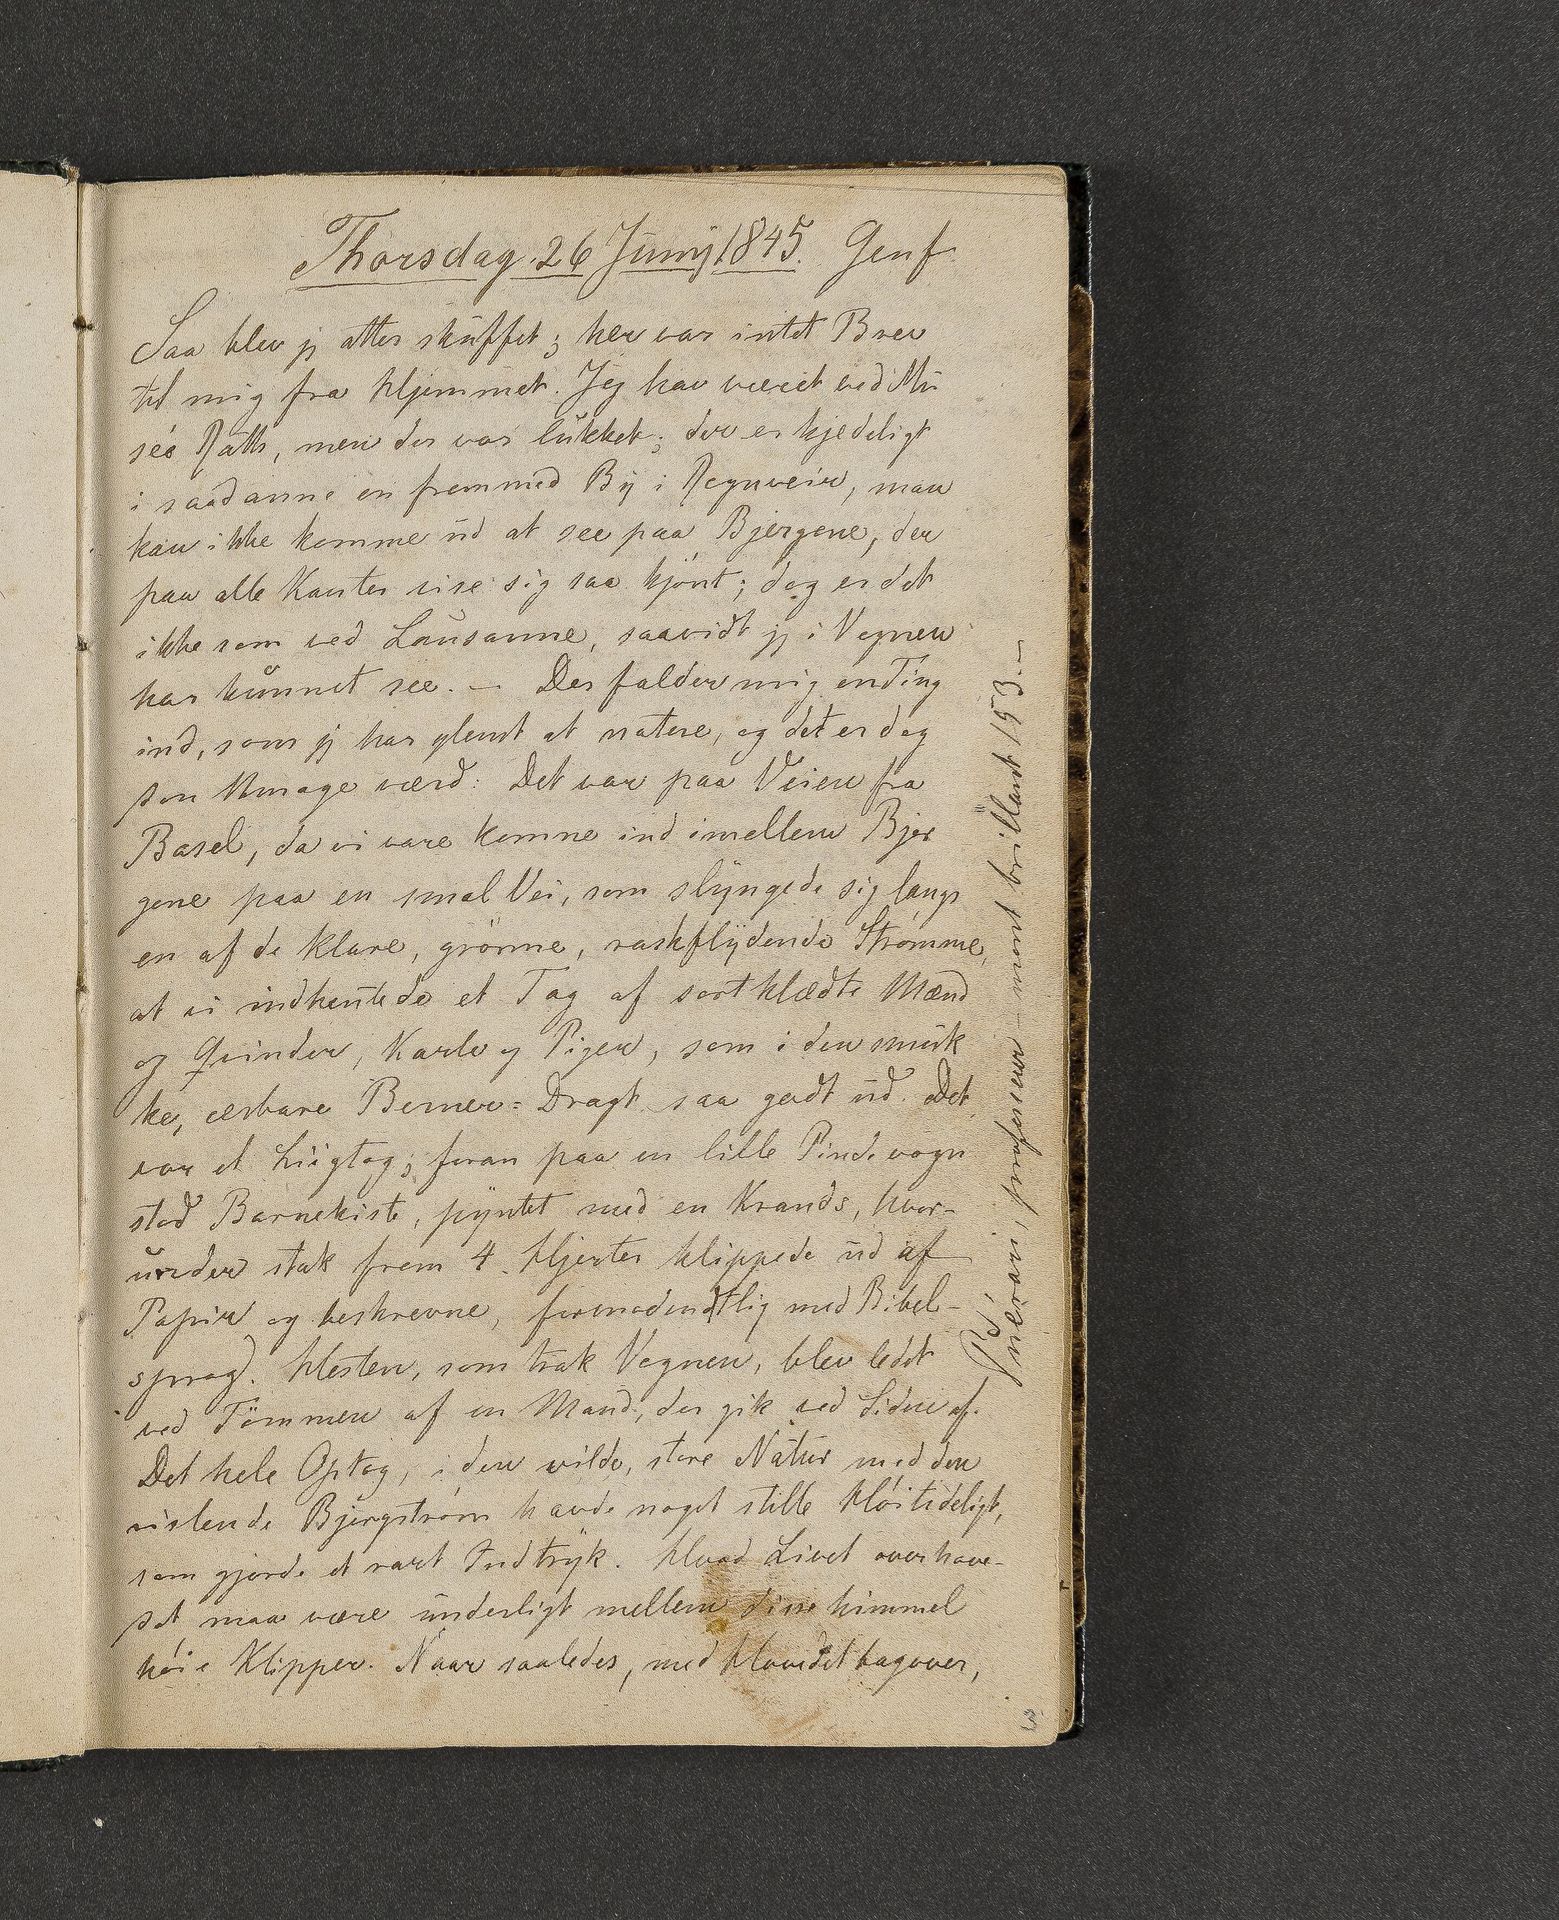 Thorsdag. 26 Junij 1845. Genf
Saa blev jeg atter skuffet; her var intet Brev
til mig fra Hjemmet. Jeg har været ved Mu
sée Rath, men der var lukket; der er kjedeligt
i saadanne en fremmed By i Regnveir, man
kan ikke komme ud at see paa Bjergene, der
paa alle Kanter vise sig saa kjönt; dog er det
ikke som ved Lausanne, saavidt jeg i Vognen
har kunnet see. — Der falder mig en Ting
ind, som jeg har glemt at notere, og det er dog
sin Umage værd: Det var paa Veien fra
Basel, da vi vare komne ind imellem Bjer
gene paa en smal Vei, som slyngede sig langs
en af de klare, grönne, raskflydende Strömme,
at vi indhentede et Tog af sortklædte Mænd
og Qvinder, Karle og Piger, som i den smuk
ke, ærbare Berner=Dragt saa godt ud. Det
var et Liigtog; foran paa en lille Pindevogn
stod Barnekiste, pyntet med en Krands, hvor-
under stak frem 4 Hjerter klippede ud af
Papir og beskrevne, formodentlig med Bibel-
sprog. Hesten, som trak Vognen, blev ledet
ved Tömmen af en Mand, der gik ved Siden af.
Det hele Optog, i den vilde, store Natur med den
rislende Bjergström havde noget stille Höitideligt,
som gjorde et rart Indtryk. Hvad Livet overhove-
det maa være underligt mellem disse himmel
höie Klipper. Naar saaledes, med Hovedet bagover,
Puérari, professeur — mont brillant 153. —
3